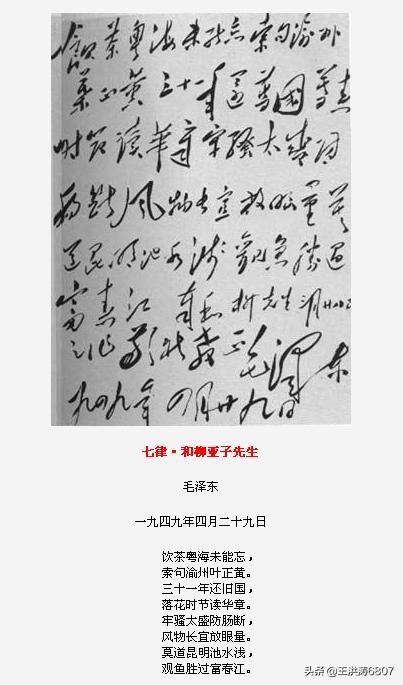 飲茶粤海未能忘索句渝州
葉正黄三十一年還舊國落花
時節讀華章牢騷太盛防
腸斷風物長宜放眼量莫
道昆明池水淺觀魚勝過
富春江 奉和柳先生三月廿八日
之作敬祈教正 毛澤東
一九四九年 四月廿九日
七律·和柳亚子先生
毛泽东
一九四九年四月二十九日
饮茶粤海未能忘，
索句渝州叶正黄。
三十一年还旧国，
落花时节读华章。
牢骚太盛防肠断，
风物长宜放眼量。
莫道昆明池水浅，
观鱼胜过富春江。
头条 @王洪涛6807